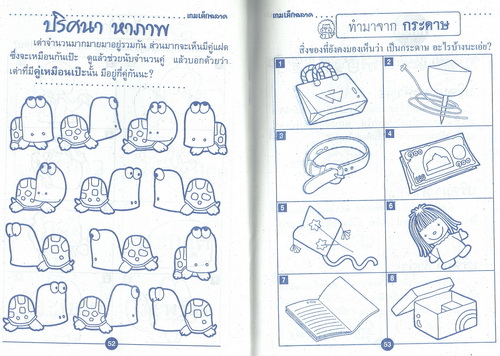 เกมเด็กฉลาด
ปริศนา หาภาพ
เต่าจำนวนมากมายมาอยู่รวมกัน ส่วนมากจะเห็นมีคู่แฝด
ซึ่งจะเหมือนกันเป๊ะ ดูแล้วช่วยนับจำนวนคู่ แล้วบอกด้วยว่า
เต่าที่มีคู่เหมือนเป๊ะนั้น มีอยู่กี่คู่กันนะ?
52
เกมเด็กฉลาด
ทำมาจาก กระดาษ
สิ่งของที่น้องคงมองเห็นว่า เป็นกระดาษ อะไรบ้างนะเอ่ย?
1
2
3
4
5
6
7
8
53